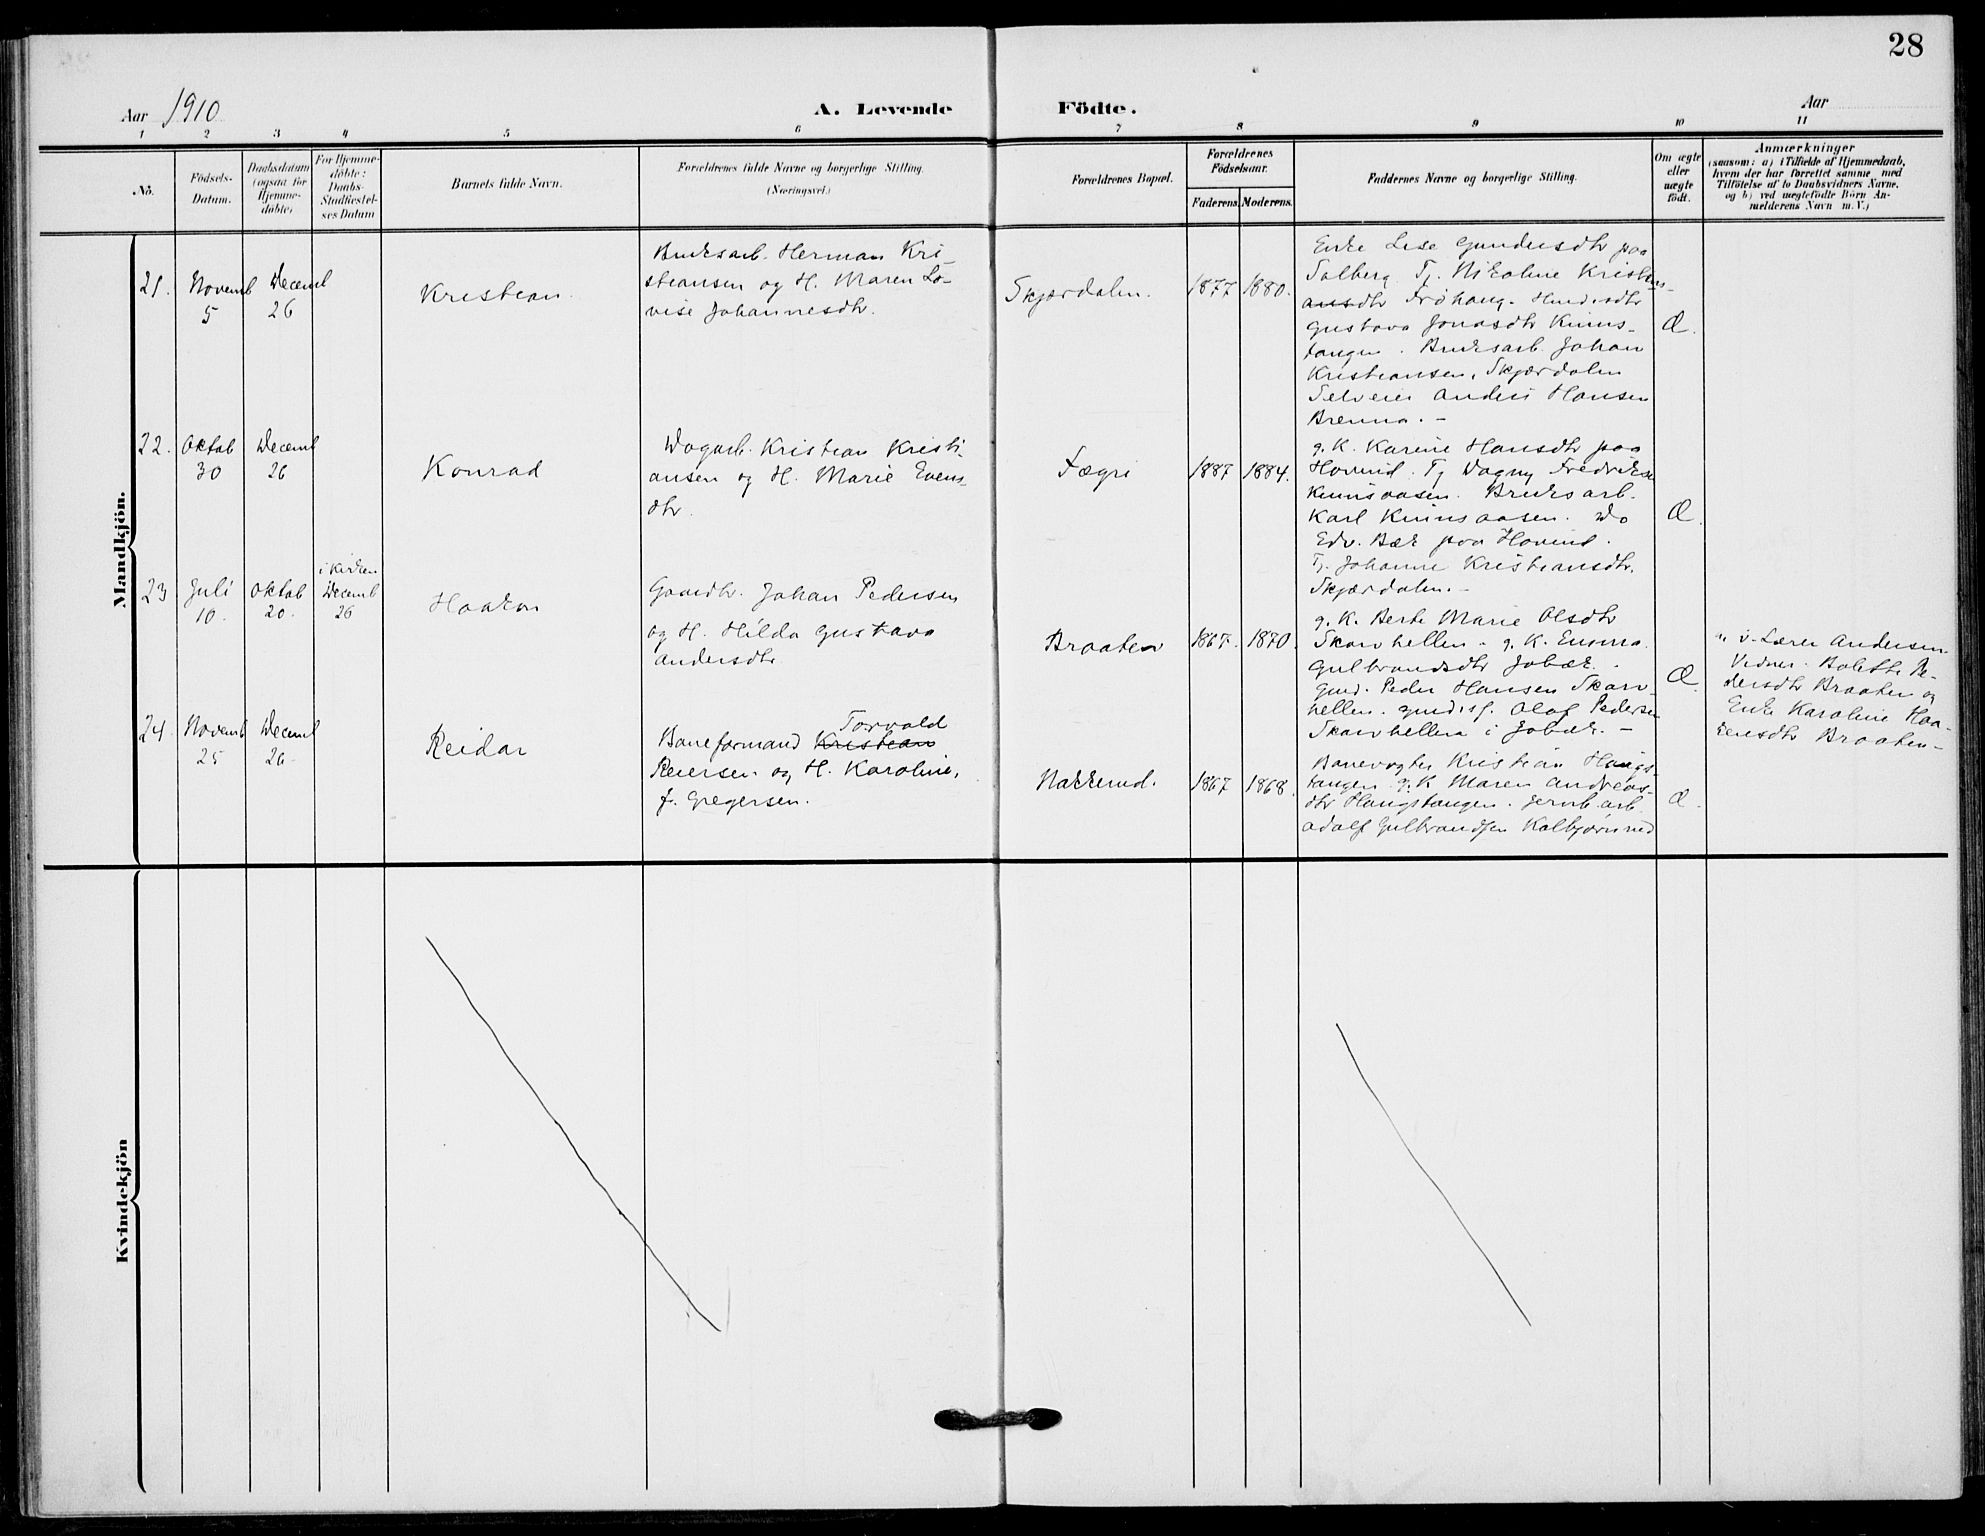 28
Aar 1910
A. Levende Födte.
Aar
1 2 3 4 5 6 7 8 9 10 11
No.
Födsels-
Datum.
Daabsdatum
(ogsaa for
Hjemme-
döbte)
For Hjemme-
döbte:
Daabs-
Stadfæstel-
ses Datum
Barnets fulde Navn.
Forældrenes fulde Navne og borgerlige Stilling.
(Næringsvei.)
Forældrenes Bopæl.
Forældrenes
Födselsaar.
Faderens. Moderens.
Faddernes Navne og borgerlige Stilling.
Om ægte
eller
uægte
födt.
Anmærkninger
(saasom: a) i Tilfælde af Hjemmedaab,
hvem der har forrettet samme, med
Tilföielse af to Daabsvidners Navne,
og b) ved uægtefödte Börn An-
melderens Navn m. V.)
Mandkjön.
21.
Novemb
5
Decemb
26
Kristian.
Bruksarb. Herman Kri-
stiansen og H. Maren Lo-
vise Johannesdtr.
Skjærdalen.
1877 1880.
Enke Lise Gundersdtr paa
Solberg Tj. Nikoline Kristens-
ansdtr Frøhaug. Husmdtr
Gustava Jonasdtr Kinns-
tangen. Bruksarb. Johan
Kristiansen, Skjærdalen
Selveier Anders Hansen
Brenna. -
Æ.
22.
Oktob
30
Decemb
26
Konrad
Dagarb. Kristian Kristi-
ansen og H. Marie Evens-
dtr.
Fægri
1887 1884.
g. K. Karine Hansdtr paa
Hovind. Tj Dagny Fredrikse
Kinnsaasen. Bruksarb.
Karl Kinnsaasen. Do
Edv. Bæk paa Hovind.
Tj. Johanne Kristiansdtr.
Skjærdalen. -
Æ.
23
Juli
10.
Oktob
20.
i Kirken
Decemb
26
Haakon
Gaardbr. Johan Pedersen
og H. Hilda Gustava
Andersdtr
Braaten
1867. 1870.
g. K. Berte Marie Olsdtr
Skarvhellen. g. K. Emma
Gulbrandsdtr Jobæk.
Gmd. Peder Hansen Skarv-
hellen. gmd.sf. Olaf Pedersen
Skarvhellen i Jobæk. -
Æ.
v. Lærer Andersen
Vidner. Bolette Pe-
dersdtr Braaten og
Enke Karoline Haa-
kensdtr Braaten -
24.
Novemb
25
Decemb
26.
Reidar
Torvald
Baneformand Kristian
Reiersen og H. Karoline,
f. Gregersen.
Nakkerud.
1867 1868.
Banevogter Kristian Haugs-
tangen g. K Maren Andreas-
dtr Haugstangen. Jernb.arb.
Adolf Gulbrandsen Kolbjørnrud
Æ.
Kvindekjön